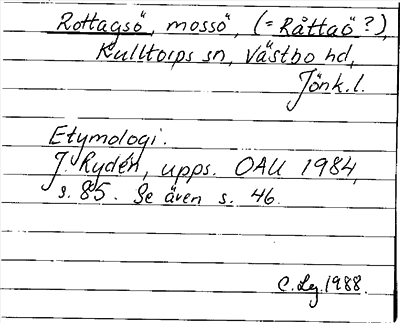 Rottagsö, mossö, (= Råttaö?),
Kulltorps sn, Västbo hd,
Jönk. l.
Etymologi.
J. Rydén, upps. OAU 1984,
s. 85. Se även s. 46.
C. Lg. 1988.